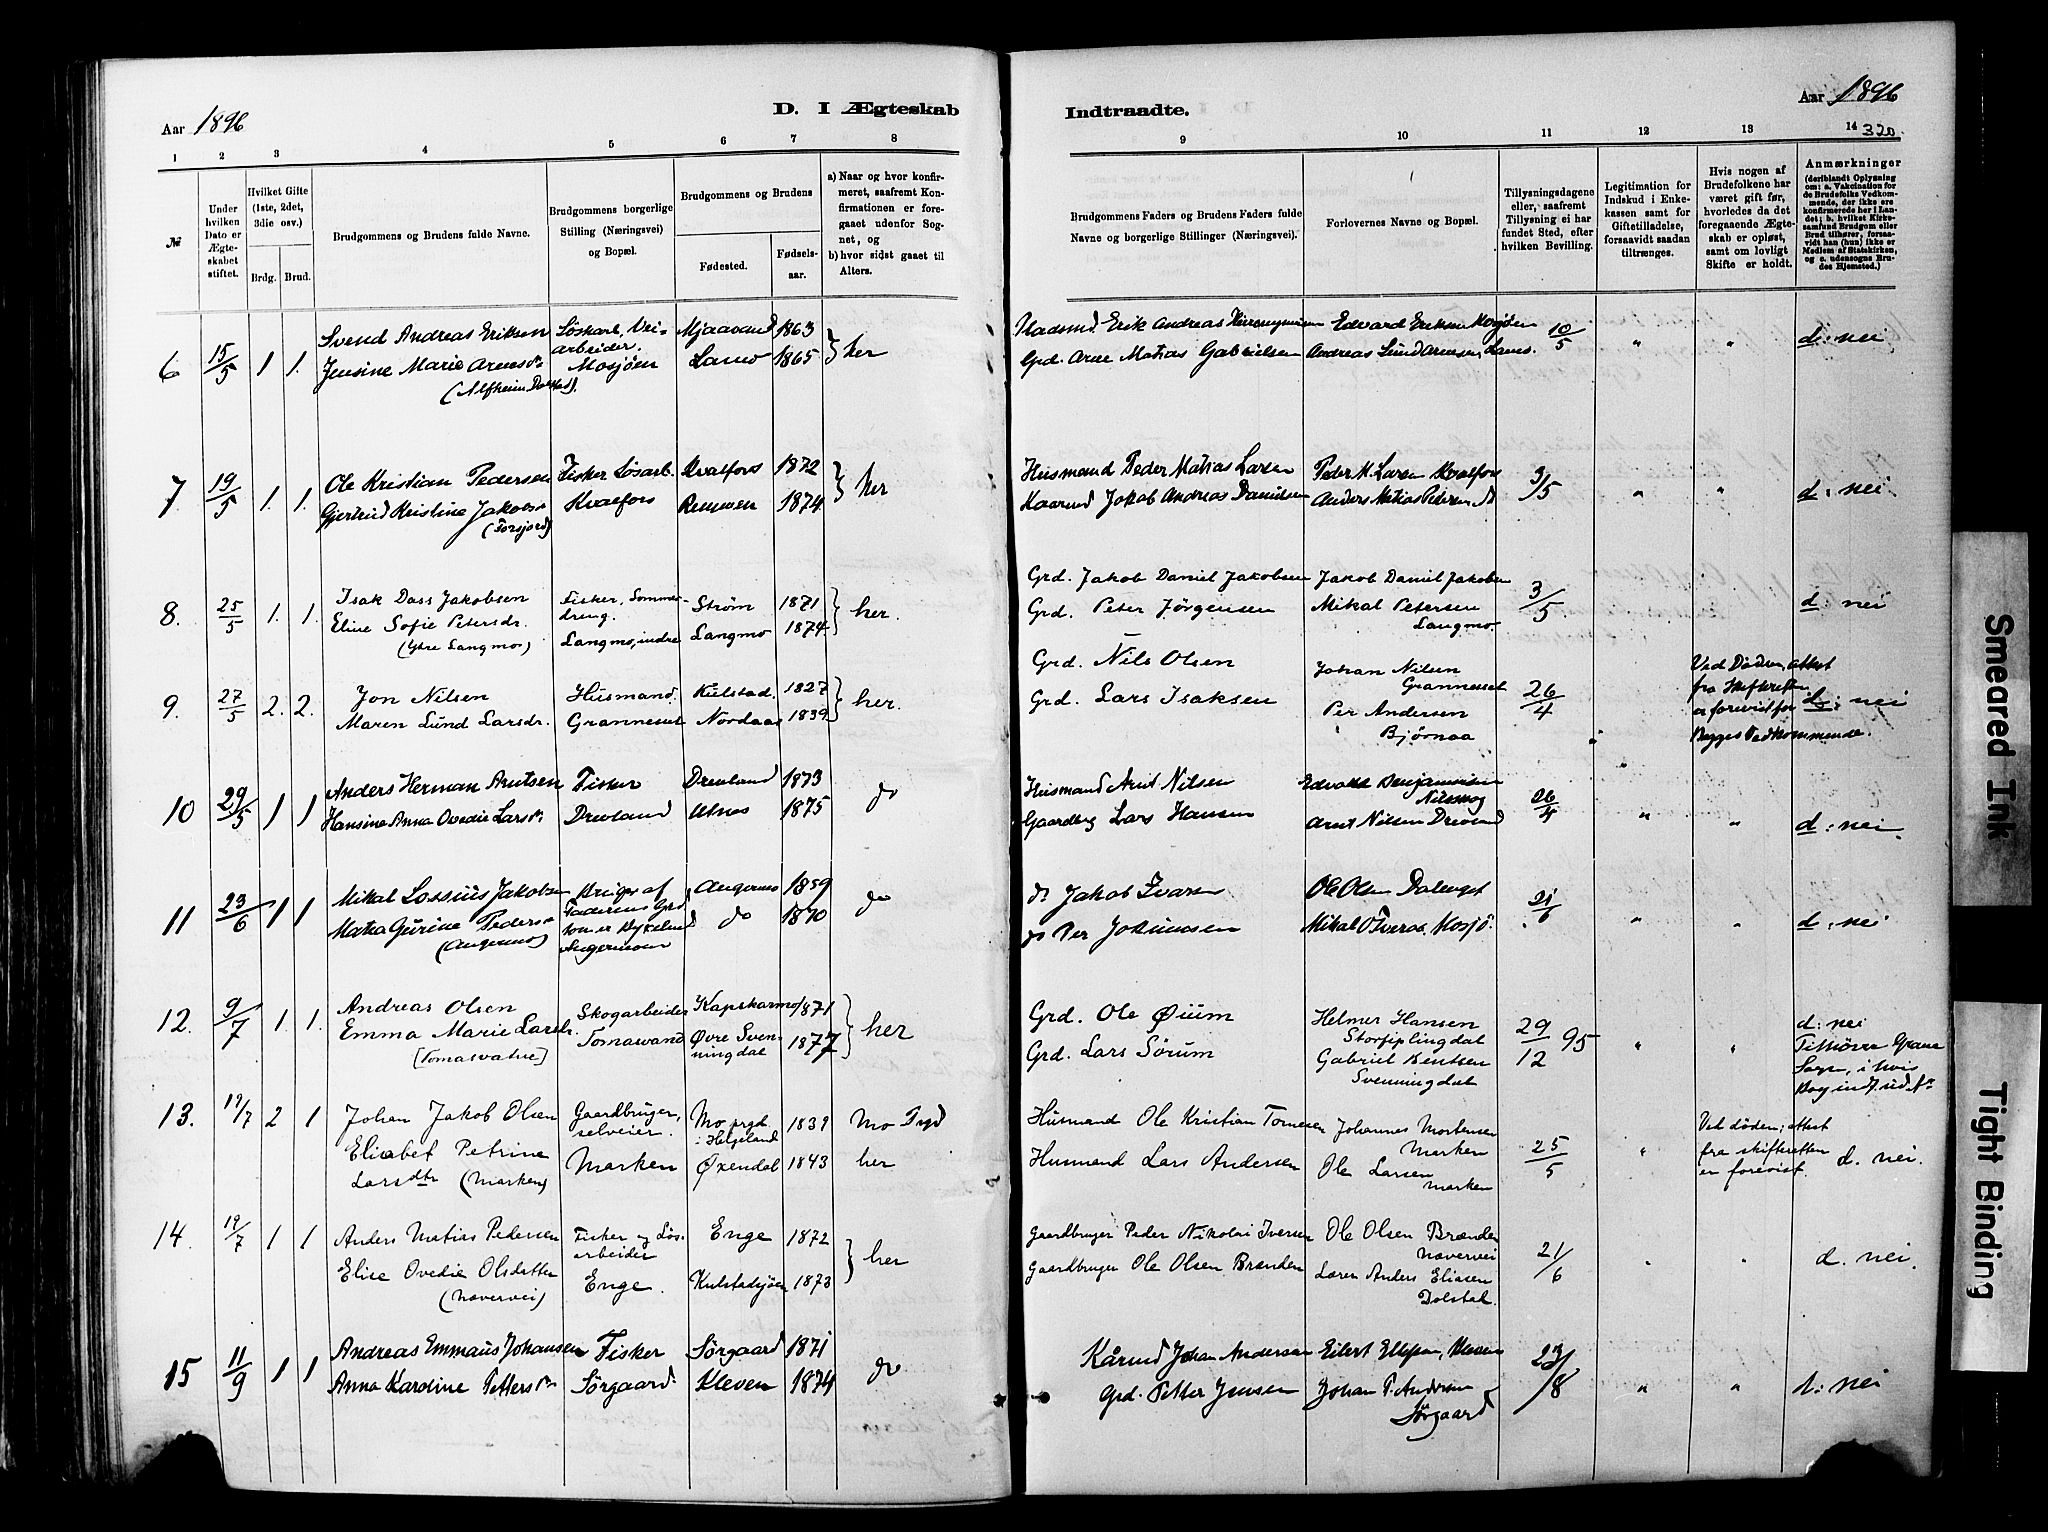 Aar 1896
D. I Ægteskab
Indtraadte.
Aar 1896
320
1 2 3 4 5 6 7 8
9 10 11 12 13 14
№
Under hvilken Dato er Ægteskabet stiftet.
Hvilket Gifte (1ste, 2det, 3die osv.)
Brdg. Brud.
Brudgommens og Brudens fulde Navne.
Brudgommens borgerlige Stilling (Næringsvei) og Bopæl.
Brudgommens og Brudens
Fødested.
Fødselsaar.
a) Naar og hvor konfirmeret, saafremt Konfirmationen er foregaaet udenfor Sognet, og
b) hvor sidst gaaet til Alters.
Brudgommens Faders og Brudens Faders fulde Navne og borgerlige Stillinger (Næringsvei).
Forlovernes Navne og Bopæl.
Tillysningsdagene eller, saafremt Tillysning ei har fundet Sted, efter hvilken Bevilling.
Legitimation for Indskud i Enkekassen samt for Giftetilladelse, forsaavidt saadan tiltrænges.
Hvis nogen af Brudefolkene har været gift før, hvorledes da det foregaaende Ægteskab er opløst, samt om lovligt Skifte er holdt.
Anmærkninger
(deriblandt Oplysning om: a. Vakcination for de Brudefolks Vedkommende, der ikke ere konfirmerede her i Landet; b. hvilket Kirkesamfund Brudgom eller Brud tilhører, forsaavidt han (hun) ikke er Medlem af Statskirken, og c. udensogns Brudes Hjemsted.)
6 15/5 1 1. Svend Andreas Eriksen Løskarl, Veiarbeider. Mjaavand 1863 } her Erik Andreas Edvard Eriksen Mosjøen 10/5 " " d: nei
Jensine Marie Arnesdr Mosjøen Lamo 1865 Grd. Arne Matias Gabrielsen Andreas Lund Arnesen, Lamo.
(Alfheim Dolstad).
7. 19/5 1. 1. Ole Kristian Pedersen Fisker Løsarb. Kvalfors 1872 } her Husmand Peder Matias Larsen Peder M. Larsen Kvalfors 3/5 " " d: nei
Gjertrud Kristine Jakobsdr Kvalfors Remmen 1874 Kaarmd Jakob Andreas Danielsen Anders Matias Pedersen do
(Forsjord)
8. 25/5 1. 1. Isak Dass Jakobsen Fisker, Strøm 1871 } her. Grd. Jakob Daniel Jakobsen Jakob Daniel Jakobsen 3/5 d: nei
Eline Sofie Petersdr. dreng. Langmo, indre Langmo 1874 Grd. Peter Jørgensen Mikal Petersen
(Ytre Langmo) Langmo.
9. 27/5 2. 2. Jon Nilsen Husmand. Kulstad. 1827 } her. Grd. Nils Olsen Johan Nilsen Grannesset 26/4 Ved Døden, attest
Maren Lund Larsdr. Grannesset Nordaas 1839 Grd. Lars Isaksen Per Andersen Bjørnaa fra Skifteretten er forevist for d: nei
Begges Vedkommende.
10 29/5 1 1 Anders Herman Arntsen Fisker Drevland 1873 do Husmand Arnt Nilsen Edvard Benjaminsen Nilsskog 26/4 " " d: nei.
Hansine Anna Ovedie Larsdr. Drevland Utnes 1875 Gaardbrg Lars Hansen Arnt Nilsen Drevland
11 23/6 1 1 Mikal Lossius Jakobsen Bruger af Angermo 1859 do do Jakob Ivarsen Ole Olsen Dalenget 21/6 " " d: nei
Pedersdr Faderens Grd. do 1870 do Per Mikal Mosjø.
(Angermo) som er Angermoen
12. 9/7 1. 1. Andreas Olsen Skogarbeider Kapskarmo 1871 } her Grd. Ole Øium Helmer Hansen Storfiplingdal 29/12 95 " " d: nei
Emma Marie Larsdr. Tomasvand Øvre Svenningdal 1877 Grd. Lars Sørum Gabriel Bentsen Svenningdal Tilhører Grane
[Tomasvatne] Sogn, i hvis
13. 19/7 2 1 Johan Jakob Olsen Gaardbruger, selveier. Mo prgd i Helgeland 1839 Mo Prgd Husmand Ole Kristian Tornesen Johannes Mortensen Marken 25/5 " Ved døden; attest
Elisabet Petrine Marken Øxendal 1843 her Husmand Lars Andersen Ole Larsen Marken fra skifteretten er forevist d. nei.
Larsdtr (Marken)
14. 19/7 1 1 Anders Matias Pedersen Fisker og Løsarbeider Enge 1872 } her Gaardbruger Peder Nikolai Iversen Ole Olsen Brænden Næververi 21/6 " " d. nei.
Elise Ovedie Olsdatter Enge. Kulstadsjøen 1873 Gaardbruger Ole Olsen Brænden Loren Anders Eliasen Dolstad.
(Nævervei)
15 11/9 1 1 Andreas Emmaus Johansen Fisker Sørgaard 1871 do Kårmd Johan Andersen Eilert Ellefsen, Kleven 23/8 " " d: nei
Anna Karoline Pettersdr Sørgaard. Kleven 1874 Grd. Petter Jensen Johan P. Andersen
Sørgaard
Smeared Ink
Tight Binding